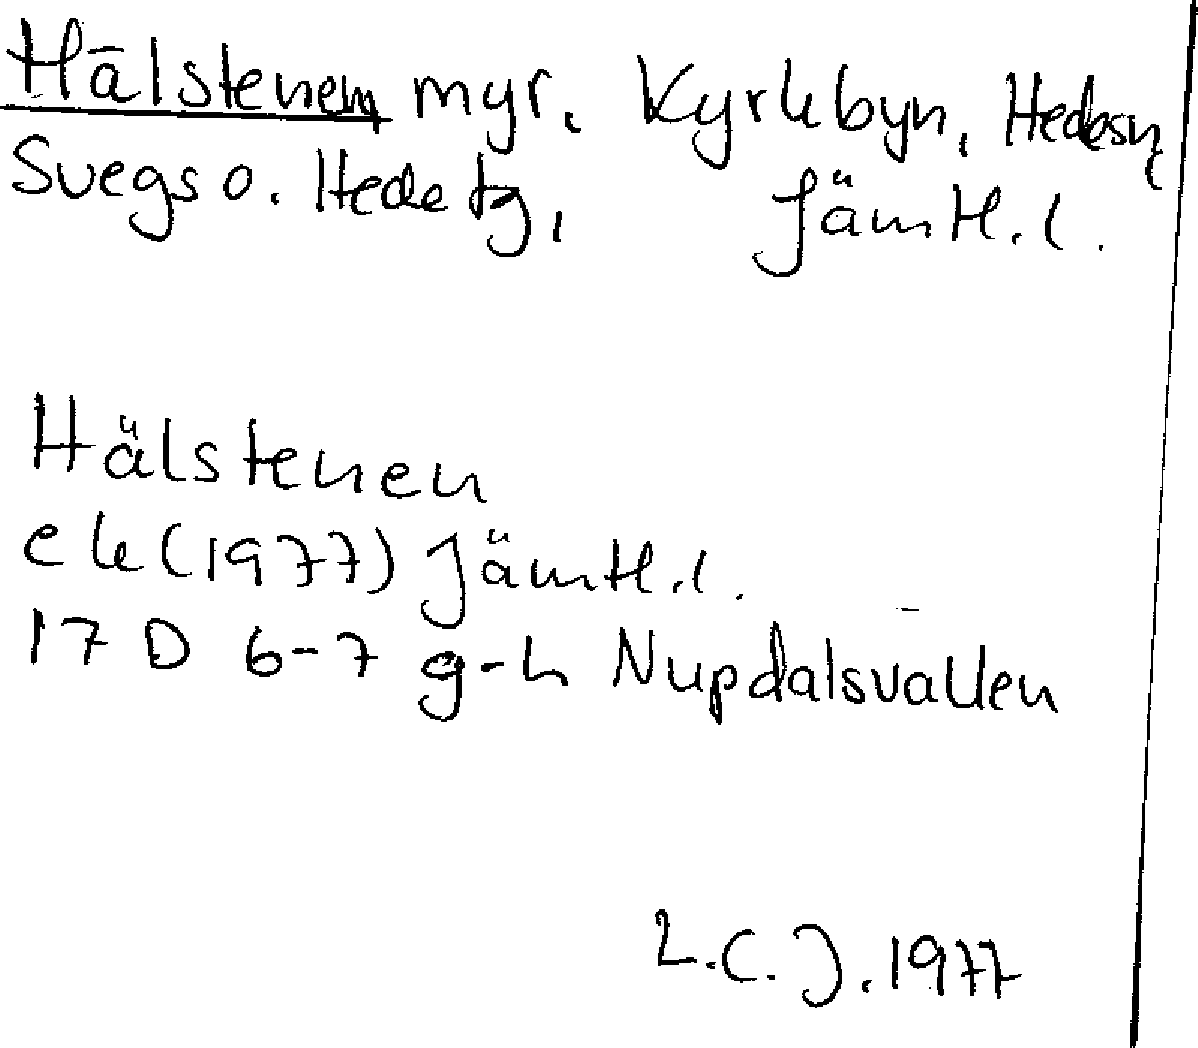 Hälstenen, myr, Kyrkbyn, Hede sn,
Svegs o. Hede tg, Jämtl. l.
Hälstenen
ek (1977) Jämtl. l.
17 D 6-7 g-h Nupdalsvallen
L.C.J. 1977